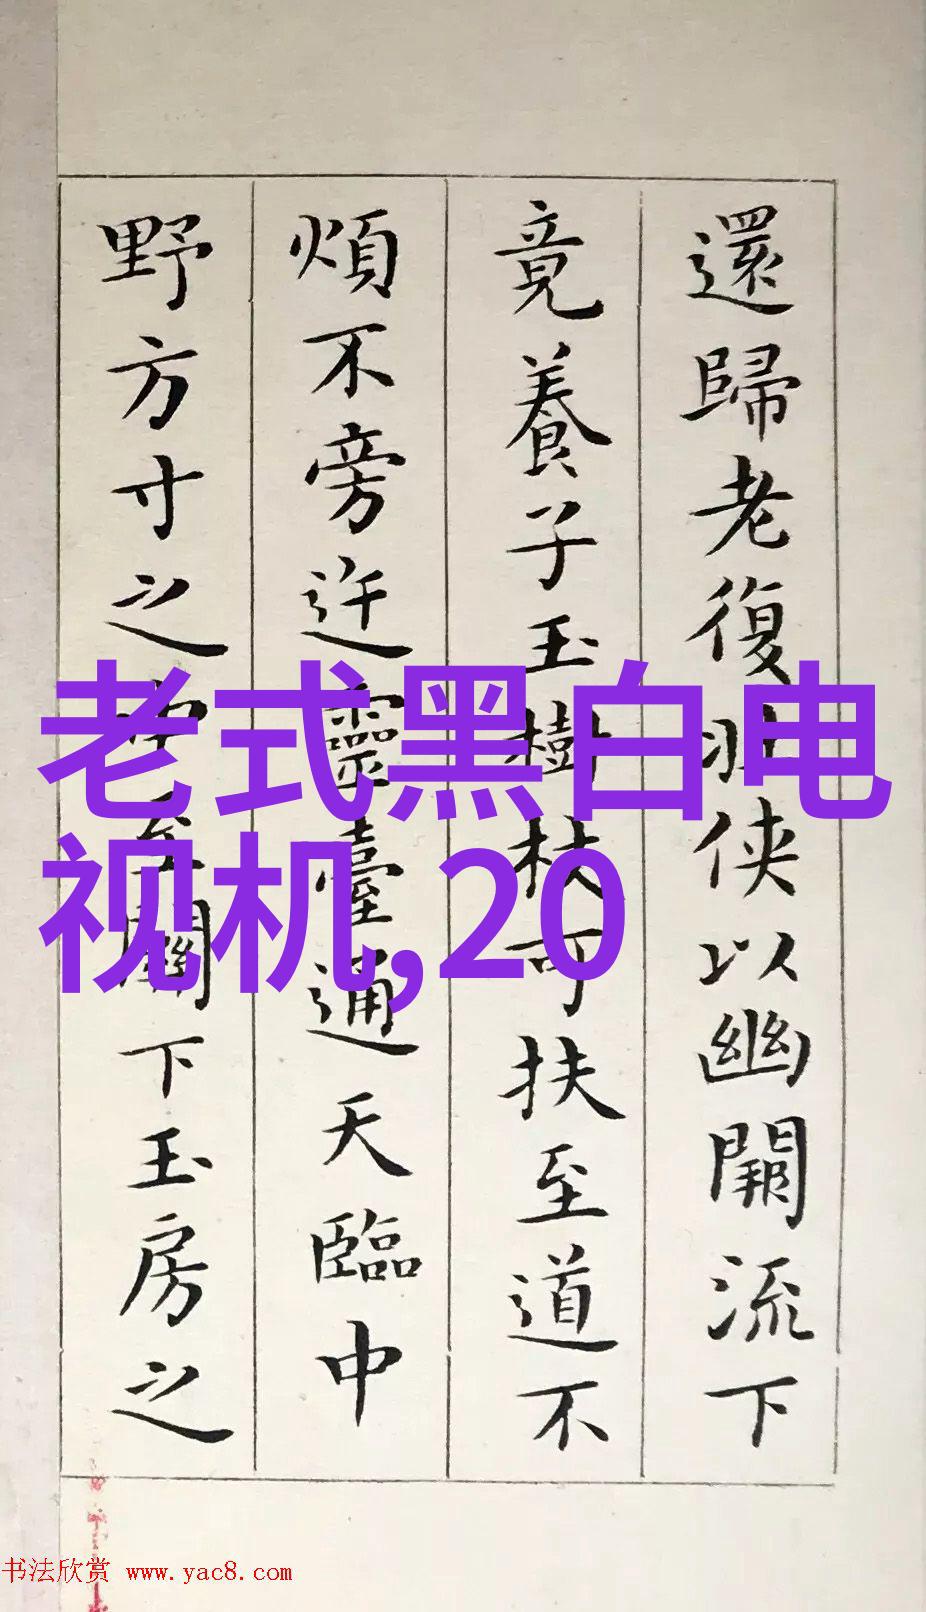 還歸老復壯俠以幽闕流下
竟養子玉樹杖可扶至道不
煩不旁迕靈臺通天臨中
野方寸之中至關下玉房之
老式黑白电
视机,20
书法欣赏 www.yac8.com